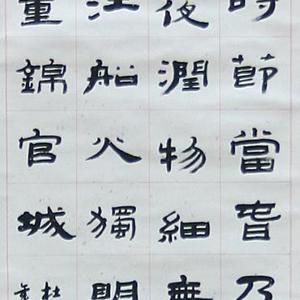 時節當旾乃
夜潤物細無
江船火獨明
重錦官城
杜